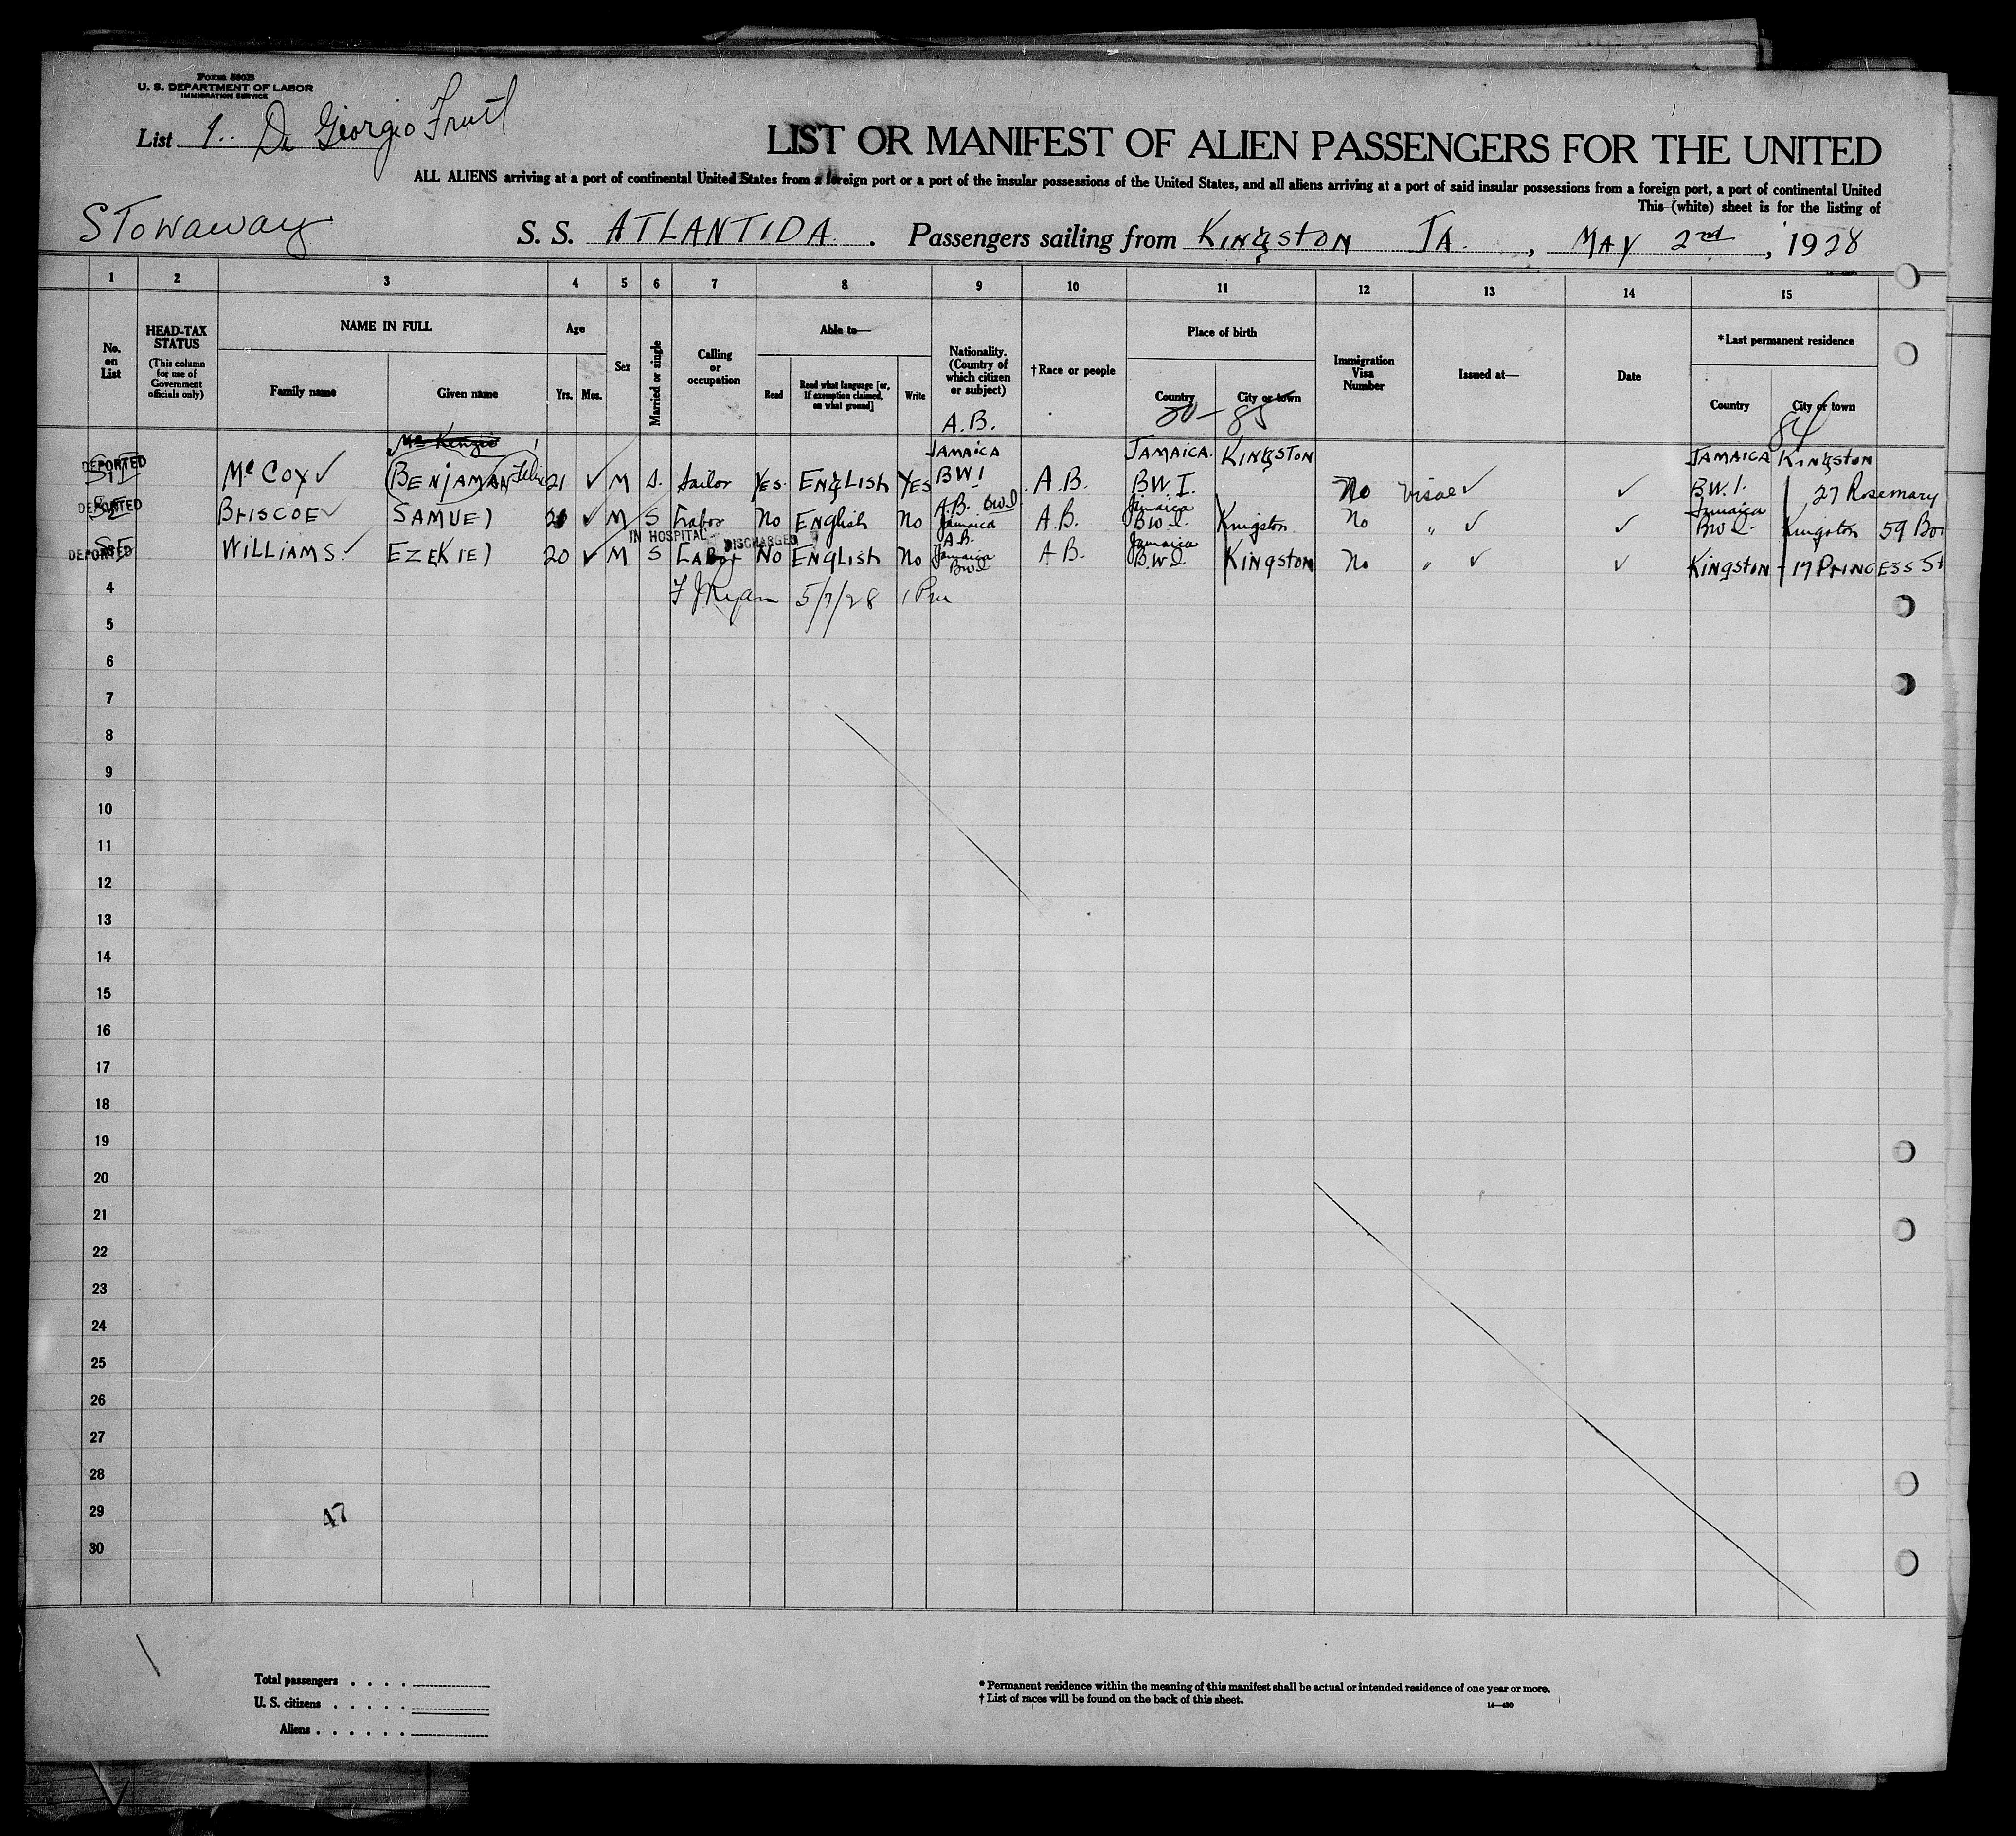 Form 500B
U. S. DEPARTMENT OF LABOR
IMMIGRATION SERVICE
List 1. Di Georgio Fruit
LIST OR MANIFEST OF ALIEN PASSENGERS FOR THE UNITED
ALL ALIENS arriving at a port of continental United States from a foreign port or a port of the insular possessions of the United States, and all aliens arriving at a port of said insular possessions from a foreign port, a port of continental United
This (white) sheet is for the listing of
STowaway
S. S. ATLANTIDA. Passengers sailing from KINGSTON JA., MAY 2nd, 1928
1 2 3 4 5 6 7 8 9 10 11 12 13 14 15
No. on List
HEAD-TAX STATUS
(This column for use of Government officials only)
NAME IN FULL
Family name Given name
Age
Yrs. Mos.
Sex
Married or single
Calling or occupation
Able to—
Read
Read what language [or, if exemption claimed, on what ground]
Write
Nationality. (Country of which citizen or subject)
†Race or people
Place of birth
Country City or town
Immigration Visa Number
Issued at—
Date
*Last permanent residence
Country City or town
A.B. 20-85 84
Mc Kenzie JAMAICA JAMAICA. KINGSTON JAMAICA KINGSTON
DEPORTED Mc COY ✓ BENJAMAN Felix 21 ✓ M S. Sailor Yes. ENGLISH YES BWI A.B. B.W.I. No Visae ✓ ✓ B.W.I. 27 Rosemary
DEPORTED BRISCOE ✓ SAMUEl ✓ M S Labor No English No A.B. BWI Jamaica A.B. Jamaica B.W.I. Kingston No " ✓ ✓ Jamaica BWI Kingston 59
IN HOSPITAL DISCHARGED
DEPORTED WILLIAMS. ✓ EZEKIEl 20 ✓ M S LAbor No ENGLISH No A.B. Jamaica BWI A.B. Jamaica B.W.I. Kingston No " ✓ ✓ Kingston - 17 PRINCESS St
4 F J Ryan 5/7/28
5
6
7
8
9
10
11
12
13
14
15
16
17
18
19
20
21
22
23
24
25
26
27
28
29 47
30
Total passengers . . . .
U. S. citizens . . . . .
Aliens . . . . . .
* Permanent residence within the meaning of this manifest shall be actual or intended residence of one year or more.
† List of races will be found on the back of this sheet.
14—430